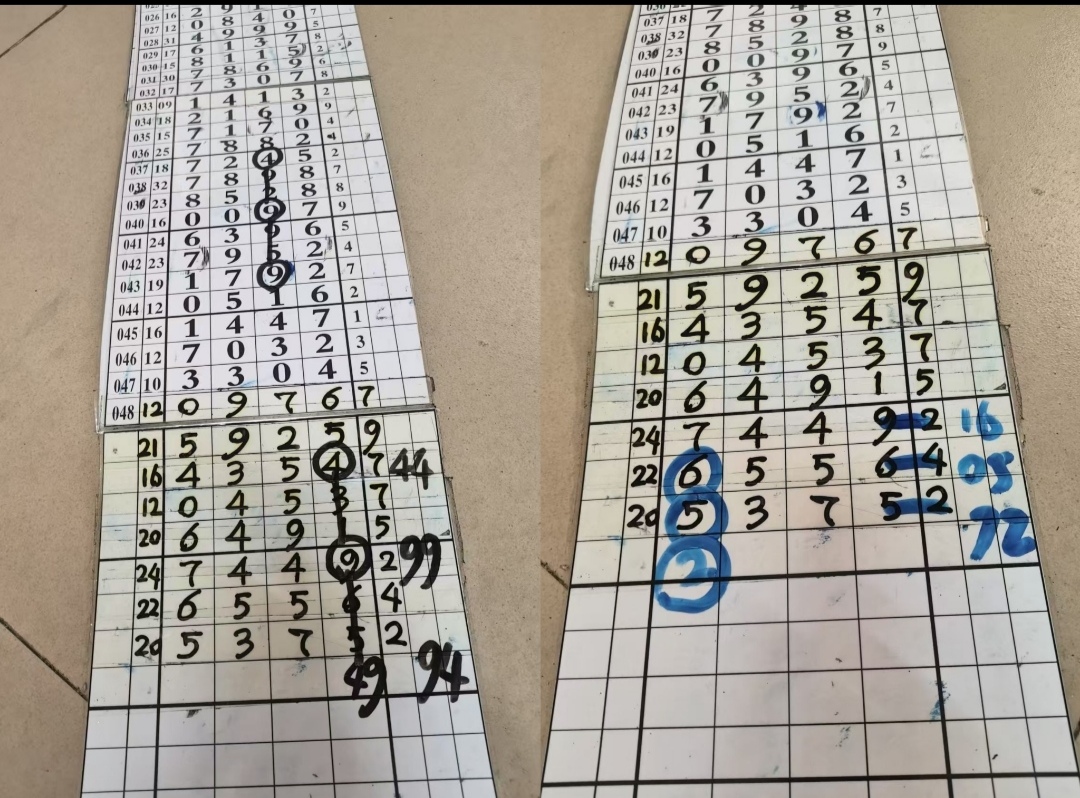 026 16 2 9 1
027 12 0 8 4 0 7
028 31 4 9 9 9 5
029 17 6 1 3 7 8
030 15 8 1 1 5 2
031 30 7 8 6 9 6
032 17 7 3 0 7 8
033 09 1 4 1 3 2
034 18 2 1 6 9 9
035 15 7 1 7 0 4
036 25 7 8 8 2 4
037 18 7 2 4 5 2
038 32 7 8 9 8 7
039 23 8 5 2 8 8
040 16 0 0 9 7 9
041 24 6 3 9 6 5
042 23 7 9 5 2 4
043 19 1 7 9 2 7
044 12 0 5 1 6 2
045 16 1 4 4 7 1
046 12 7 0 3 2 3
047 10 3 3 0 4 5
048 12 0 9 7 6 7
21 5 9 2 5 9
16 4 3 5 4 7 44
12 0 4 5 3 7
20 6 4 9 1 5
24 7 4 4 9 2 99
22 6 5 5 6 4
20 5 3 7 5 2
49 94
037 18 7 2
038 32 7 8 9 8 7
039 23 8 5 2 8 8
040 16 0 0 9 7 9
041 24 6 3 9 6 5
042 23 7 9 5 2 4
043 19 1 7 9 2 7
044 12 0 5 1 6 2
045 16 1 4 4 7 1
046 12 7 0 3 2 3
047 10 3 3 0 4 5
048 12 0 9 7 6 7
21 5 9 2 5 9
16 4 3 5 4 7
12 0 4 5 3 7
20 6 4 9 1 5
24 7 4 4 9 2 16
22 6 5 5 6 4 05
20 5 3 7 5 2 72
2